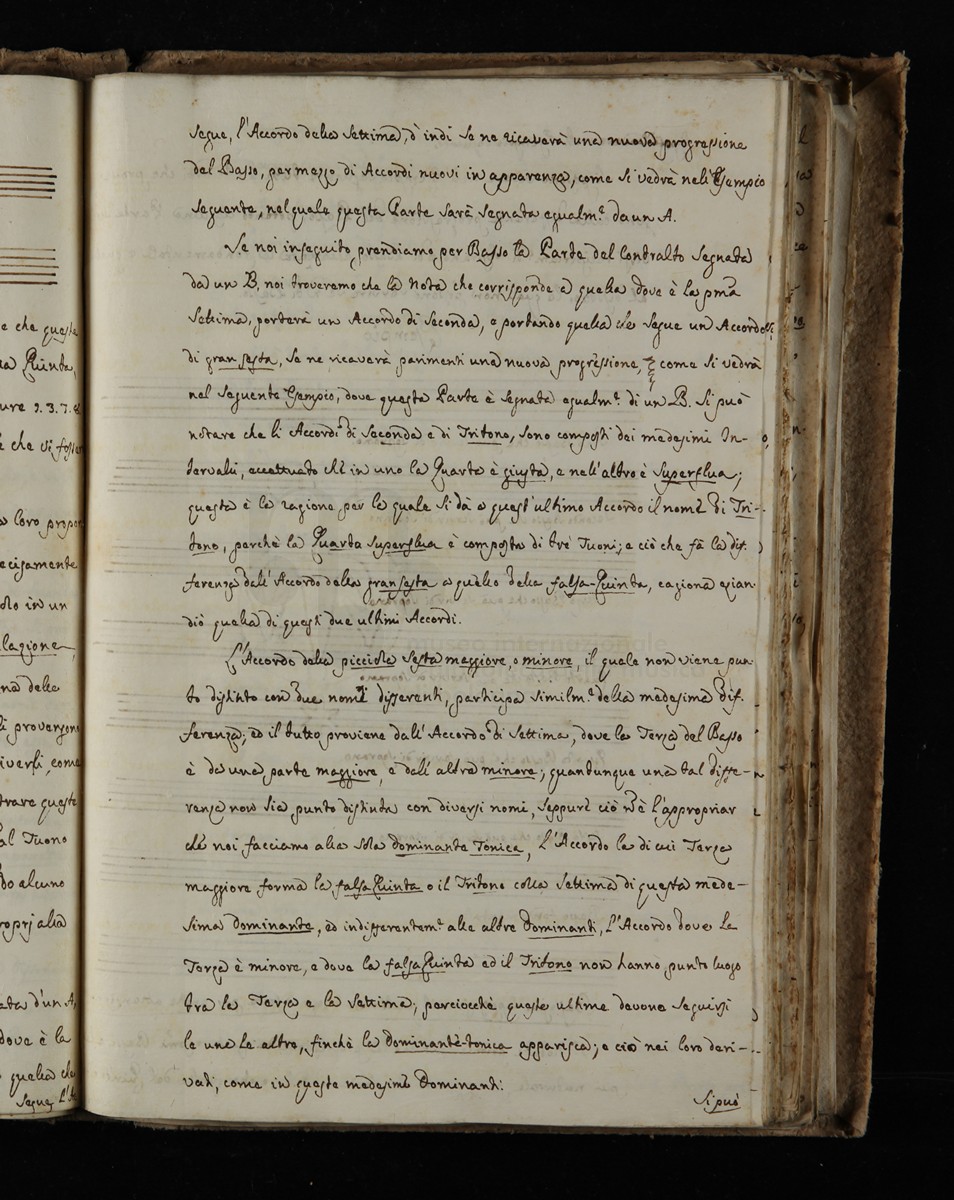 e che queste
ta Quinta,
ure 9.3.7.8
e che si fosser
a loro propor
ecisamente
olo in un
lazione
na delle
li provengon
iversi, come
trare queste
al Tuono
do alcuno
roprj alla
ata d'un A,
dove è la
quella che
Segue, l'A
segue, l'Accordo della Settima, d'indi se ne ricaverà una nuova progressione
del Basso, per mezzo di Accordi nuovi in apparenza, come si vedrà nell'Esempio
seguente, nel quale questa Parte sarà segnata egualm.e da un A.
Se noi inseguito prendiamo per Basso la Parte del Contralto segnata
da un B, noi troveremo che la Nota che corrisponde a quella dove è la pma
Settima, porterà un Accordo di Seconda, e portando quella che segue un Accordo
di gran sesta, se ne ricaverà parimenti una nuova progressione, come si vedrà
nel seguente Esempio, dove questa Parte è segnata egualm.e di un B. Si può
notare che li Accordi di Seconda e di Tritono, sono composti dei medesimi In-
tervalli, eccettuato chè in uno la Quarta è giusta, e nell'altro è Superflua;
questa è la ragione per la quale si dà a quest'ultimo Accordo il nome di Tri-
tono, perchè la Quarta Superflua è composta di trè Tuoni; e ciò che fà la dif.
ferenza dall'Accordo della gran sesta a quello della falsa-Quinta, cagiona ezian
diò quella di questi due ultimi Accordi.
L'Accordo della picciola Sesta maggiore, o minore, il quale non viene pun
to distinto con due nomi differenti, participa similm.e della medesima dif.
ferenza; ed il tutto proviene dall'Accordo di Settima, dove la Terza del Basso
è da una parte maggiore, e dall'altra minore; quantunque una tal diffe-
renza non sia punto distinta con diversi nomi, seppure ciò n'è l'appropriar
chè noi facciamo alla sola dominante Tonica, l'Accordo la di cui Terza
maggiore forma la falsa Quinta o il Tritono colla Settima di questa mede-
sima dominante, ed indifferentem.e alle altre Dominanti, l'Accordo dove la
Terza è minore, e dove la falsa Quinta ed il Tritono non hanno punto luogo
tra la Terza e la Settima; perciocchè queste ultime devono seguirsi
le une le altre, finchè la dominante-tonica apparisca; e ciò nei loro deri-
vati, come in queste medesime Dominanti.
Si può